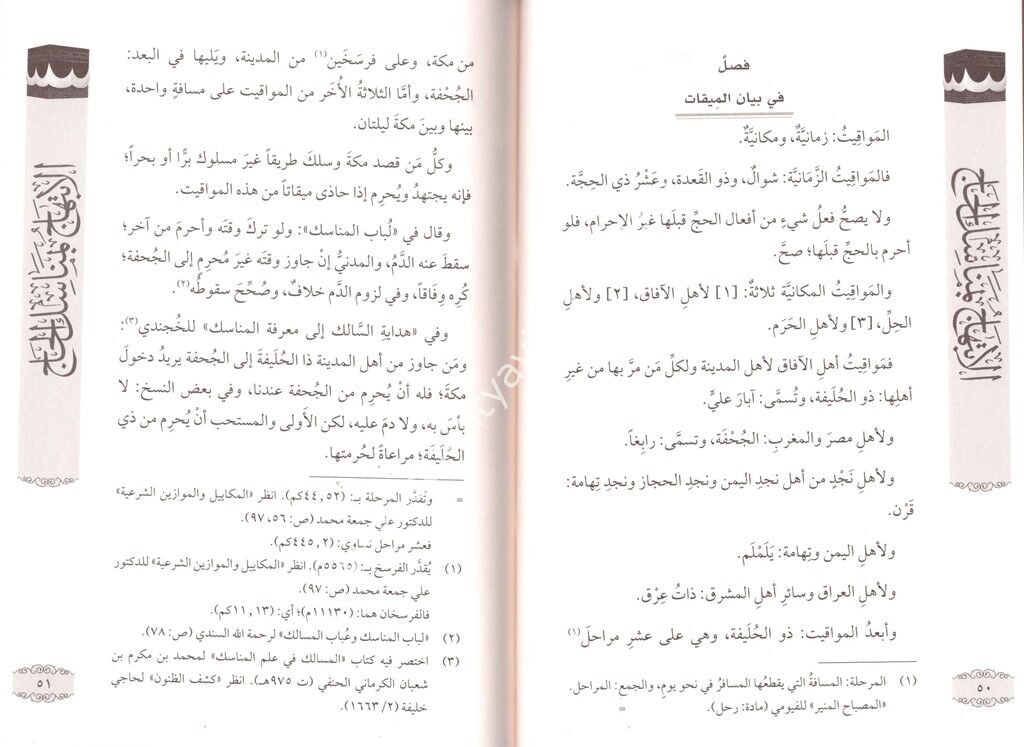 فصلٌ
في بيان المِيقات
المَواقيتُ: زمانيَّةٌ، ومكانيَّةٌ.
فالمَواقِيتُ الزَّمانيَة: شوالٌ، وذو القَعدة، وعَشْرُ ذي الحِجَّة.
ولا يصحُّ فعلُ شيءٍ من أفعال الحجِّ قبلَها غيرُ الإحرام، فلو
أحرم بالحجِّ قبلَها؛ صحَّ.
والمَواقيتُ المكانيَّة ثلاثةٌ: [١] لأهلِ الآفاق، [٢] ولأهلِ
الحِلِّ، [٣] ولأهلِ الحَرَم.
فمَواقيتُ أهلِ الآفاق لأهل المدينة ولكلِّ مَن مرَّ بها من غيرِ
أهلِها: ذو الحُلَيفة، وتُسمَّى: آبارَ عليٍّ.
ولأهلِ مصرَ والمغربِ: الجُحْفَة، وتسمَّى: رابِغاً.
ولأهلِ نَجْدٍ من أهل نجدِ اليمن ونجدِ الحجاز ونجدِ تِهامة:
قَرْن.
ولأهلِ اليمن وتِهامة: يَلَمْلَم.
ولأهلِ العراق وسائرِ أهلِ المشرق: ذاتُ عِرْق.
وأبعدُ المواقيت: ذو الحُلَيفة، وهي على عشرِ مراحلَ (١)
(١) المرحلة: المسافةُ التي يقطعُها المسافرُ في نحو يومٍ، والجمع: المراحل.
«المصباح المنير» للفيومي (مادة: رحل). =
الابتهاج بمناسك الحاج
٥٠
من مكة، وعلى فرسَخَين (١) من المدينة، ويَليها في البعد:
الجُحْفة، وأمَّا الثلاثةُ الأُخَر من المواقيت على مسافةٍ واحدة،
بينها وبينَ مكةَ ليلتان.
وكلُّ مَن قصد مكةَ وسلكَ طريقاً غيرَ مسلوك برًّا أو بحراً؛
فإنه يجتهدُ ويُحرِم إذا حاذى ميقاتاً من هذه المواقيت.
وقال في «لُباب المناسك»: ولو تركَ وقتَه وأحرمَ من آخر؛
سقطَ عنه الدَّمُ، والمدنيُّ إنْ جاوز وقتَه غيرَ مُحرِمٍ إلى الجُحفة؛
كُرِه وِفاقاً، وفي لزوم الدَّم خلافٌ، وصُحِّحَ سقوطُه (٢).
وفي «هدايةِ السَّالك إلى معرفة المناسك» للخُجندي (٣):
ومَن جاوز من أهل المدينة ذا الحُلَيفةَ إلى الجُحفة يريدُ دخولَ
مكةَ؛ فله أنْ يُحرِم من الجُحفة عندنا، وفي بعض النسخ: لا
بأسَ به، ولا دمَ عليه، لكن الأَولى والمستحب أنْ يُحرِم من ذي
الحُلَيفَة؛ مراعاةً لحُرمتها.
= وتُقدَّر المرحلة بـ: (٤٤,٥٢كم). انظر «المكاييل والموازين الشرعية»
للدكتور علي جمعة محمد (ص: ٥٦، ٩٧).
فعشر مراحل تساوي: (٤٤٥,٢كم).
(١) يُقدَّر الفرسخ بـ: (٥٥٦٥م). انظر «المكاييل والموازين الشرعية» للدكتور
علي جمعة محمد (ص: ٩٧).
فالفرسخان هما: (١١١٣٠م)؛ أي: (١١,١٣كم).
(٢) «لباب المناسك وعُباب المسالك» لرحمة الله السندي (ص: ٧٨).
(٣) اختصر فيه كتاب «المسالك في علم المناسك» لمحمد بن مكرم بن
شعبان الكرماني الحنفي (ت ٩٧٥هـ). انظر «كشف الظنون» لحاجي
خليفة (٢/ ١٦٦٣).
الابتهاج بمناسك الحاج
٥١